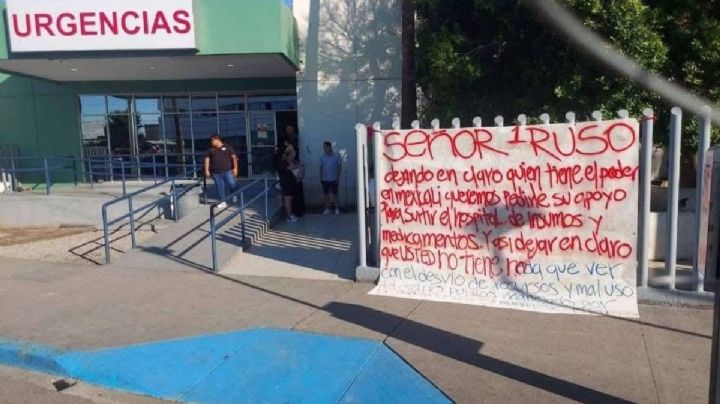 URGENCIAS
SEÑOR 1 RUSO
dejando en claro quien tiene el poder
en mexicali queremos pedirle su apoyo
Para surtir el hospital de insumos y
medicamentos. Y asi dejar en claro
que USTED no tiene nada que ver
con el desvio de recursos y mal uso
público por